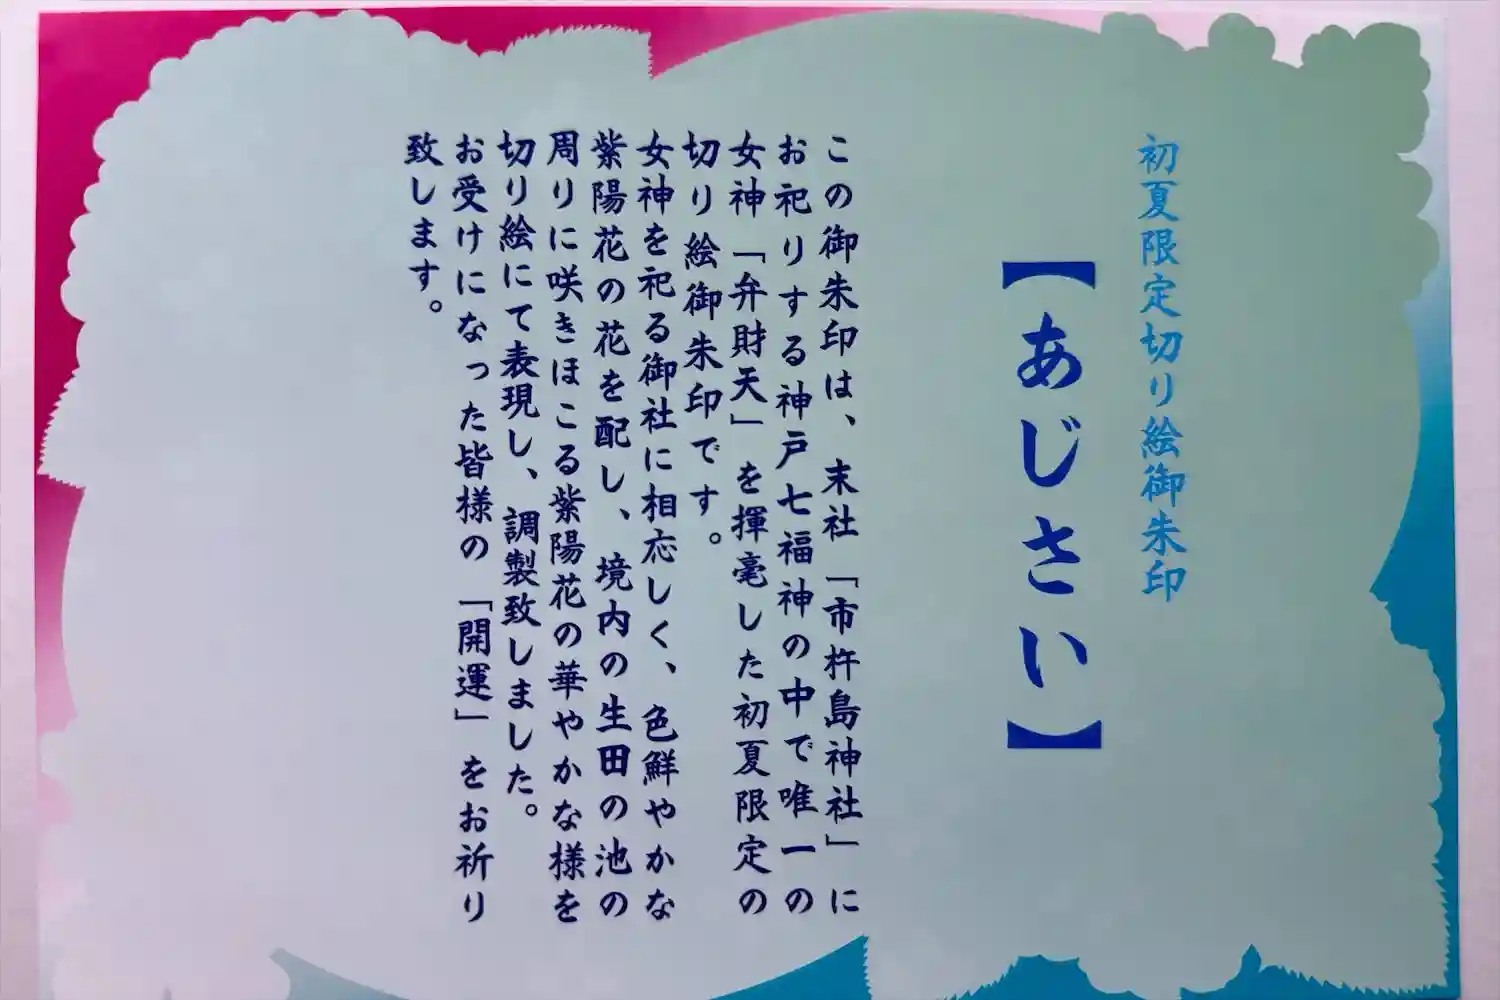 初夏限定切り絵御朱印
【あじさい】
この御朱印は、末社「市杵島神社」に
お祀りする神戸七福神の中で唯一の
女神「弁財天」を揮毫した初夏限定の
切り絵御朱印です。
女神を祀る御社に相応しく、色鮮やかな
紫陽花の花を配し、境内の生田の池の
周りに咲きほこる紫陽花の華やかな様を
切り絵にて表現し、調製致しました。
お受けになった皆様の「開運」をお祈り
致します。